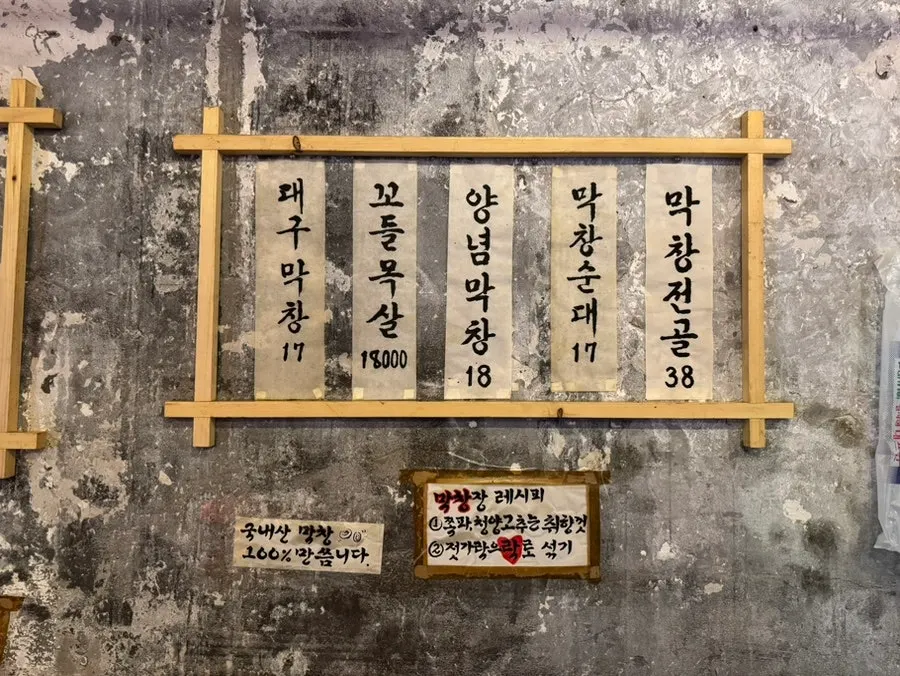 대구막창
17
꼬들목살
18000
양념막창
18
막창순대
17
막창전골
38
국내산 막창
100% 말씀니다.
막창장 레시피
①쪽파,청양고추는 취향껏
②젓가락으락로 섞기